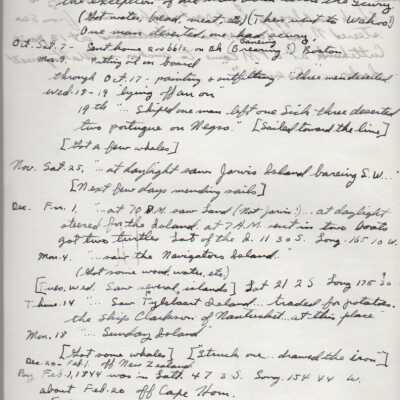 the exception of
(Got water, bread, meat, etc) (Then went to Wahoo)
One man deserted, one had scurvy.
Oct. Sat. 7 - Sent home bbls. on ship Boston
Mon. 9. Putting oil on board
through Oct. 17 - painting & outfitting "three men deserted
Wed. 18-19 lying off an on"
19th "... Shiped one man left one Sick three deserted
two portugue on Negro." [Sailed toward the line]
[Got a few whales]
Nov. Sat. 25, "...at daylight saw Jarvis Island bareing S.W..."
[Next few days mending sails]
Dec. Fri. 1. "... at 7 P.M. saw Land (Not Jarvis!)... at daylight
steered for the Island at 7 A.M. sent in two boats
got two turtles. Lat of the I. 11 30 S. Long. 165 10 W.
Mon. 4. "...saw the Navigators Island."
(Got some wood, water, etc.)
[Tues. Wed. Saw several islands] Sat 21 2 S Long 175 30
Thurs. 14 "... Saw Island... traded for potatoes.
the Ship Clarkson of Nantucket... at this place"
Mon. 18 "... Sunday Island"
[Got some whales] ["Struck one... drawed the iron"]
Dec. 20 - Feb 1 off New Zealand
Feb. 1, 1844 was in Lat. 47 3 S. Long. 154 44 W.
about Feb. 20 off Cape Horn.